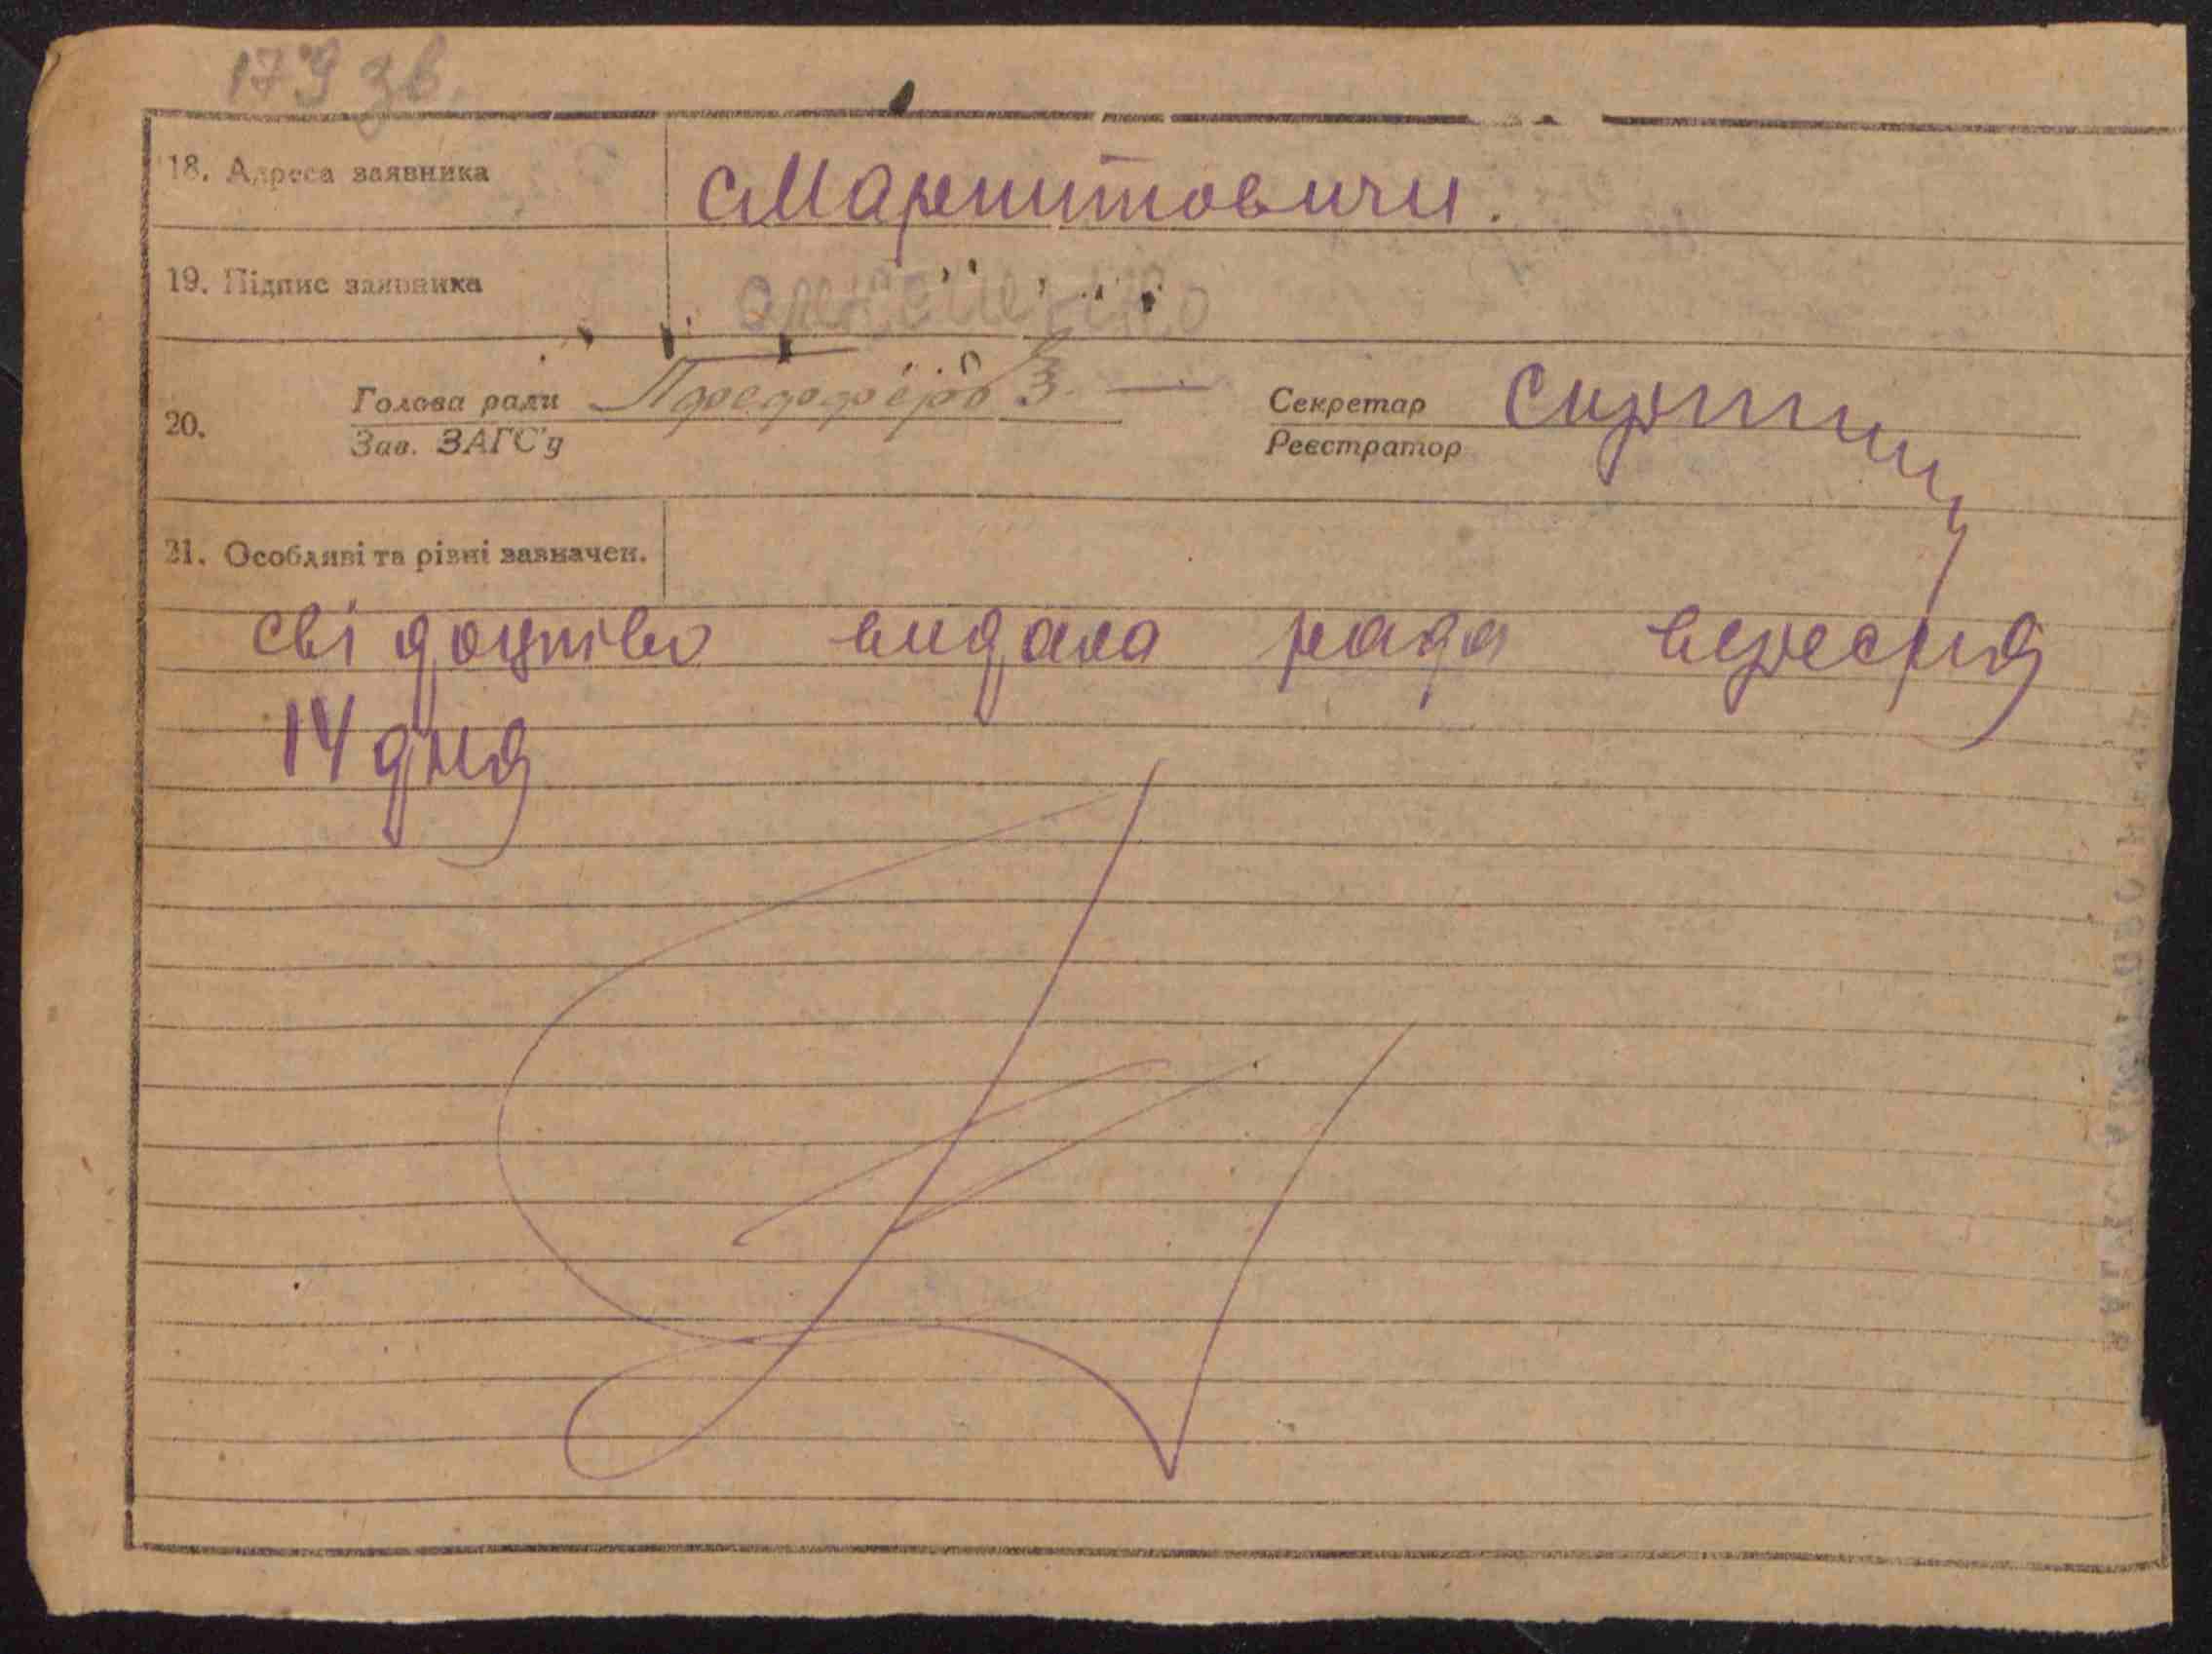 179 зв.
18. Адреса заявника с Мартитовичи.
19. Підпис заявника
20. Голова ради Секретар
Зав. ЗАГС'у Реєстратор
21. Особливі та різні зазначен.
свідоцтво видала рада вересня
14 дня